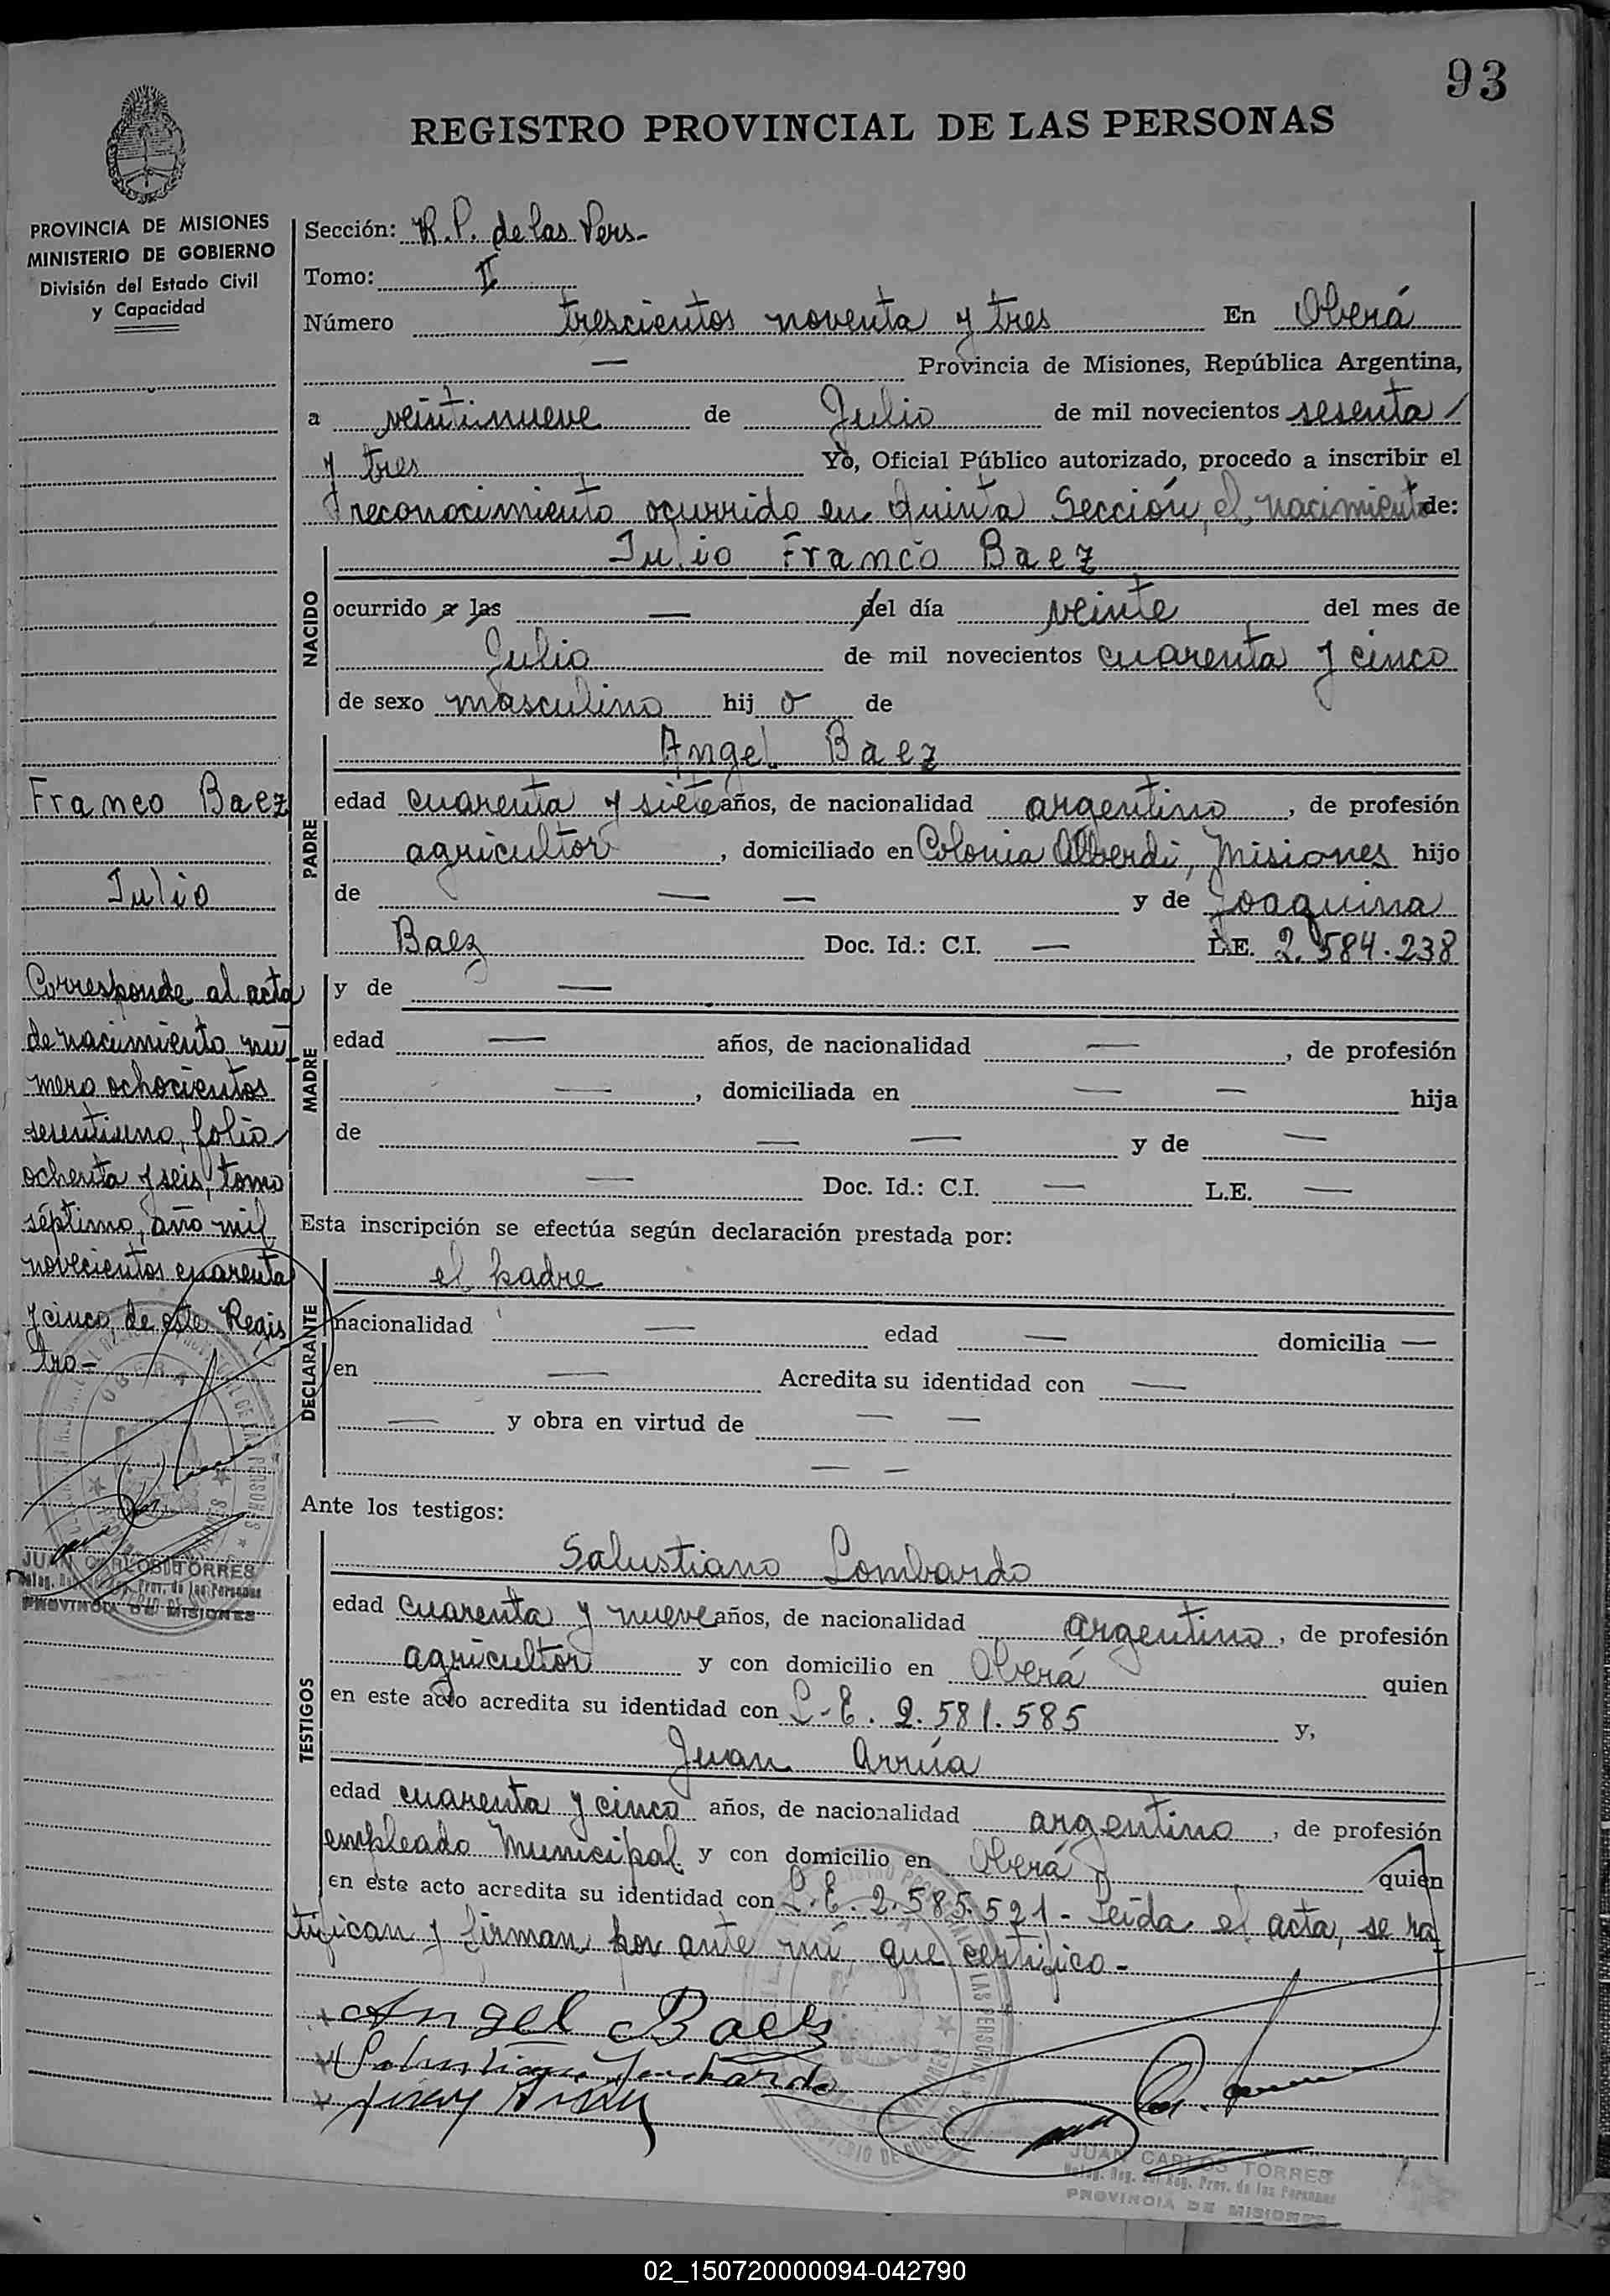 93
REGISTRO PROVINCIAL DE LAS PERSONAS
PROVINCIA DE MISIONES
MINISTERIO DE GOBIERNO
División del Estado Civil
y Capacidad
Franco Baez
Julio
Corresponde al acta
de nacimiento nú-
mero ochocientos
setentiuno, folio
ochenta y seis, tomo
séptimo, año mil
novecientos cuarenta
y cinco, de este Regis
tro-
JUAN CARLOS TORRES
Prov. de las Personas
PROVINCIA DE MISIONES
Sección: R.P. de las Pers-
Tomo: II
Número trescientos noventa y tres En Oberá
— Provincia de Misiones, República Argentina,
a veintinueve de Julio de mil novecientos sesenta
y tres Yo, Oficial Público autorizado, procedo a inscribir el
reconocimiento ocurrido en Quinta Sección, el nacimiento de:
NACIDO
Julio Franco Baez
ocurrido a las — del día veinte del mes de
Julio de mil novecientos cuarenta y cinco
de sexo masculino hij o de
PADRE
Angel Baez
edad cuarenta y siete años, de nacionalidad argentino, de profesión
agricultor, domiciliado en Colonia Alberdi, Misiones hijo
de — — y de Joaquina
Baez Doc. Id.: C.I. — L.E. 2.584.238
MADRE
y de —
edad — años, de nacionalidad —, de profesión
—, domiciliada en — — hija
de — — y de —
— Doc. Id.: C.I. — L.E. —
Esta inscripción se efectúa según declaración prestada por:
DECLARANTE
el padre
nacionalidad — edad — domicilia —
en — Acredita su identidad con —
— y obra en virtud de — —
— —
Ante los testigos:
TESTIGOS
Salustiano Lombardo
edad cuarenta y nueve años, de nacionalidad argentino, de profesión
agricultor y con domicilio en Oberá quien
en este acto acredita su identidad con L.E. 2.581.585 y,
Juan Arrúa
edad cuarenta y cinco años, de nacionalidad argentino, de profesión
empleado Municipal y con domicilio en Oberá quien
en este acto acredita su identidad con L.E. 2.585.521- Leída el acta, se ra-
tifican y firman por ante mí, que certifico-
Angel Baez
Salustiano Lombardo
Juan Arrua
JUAN CARLOS TORRES
Prov. de las Personas
PROVINCIA DE MISIONES
02_150720000094-042790